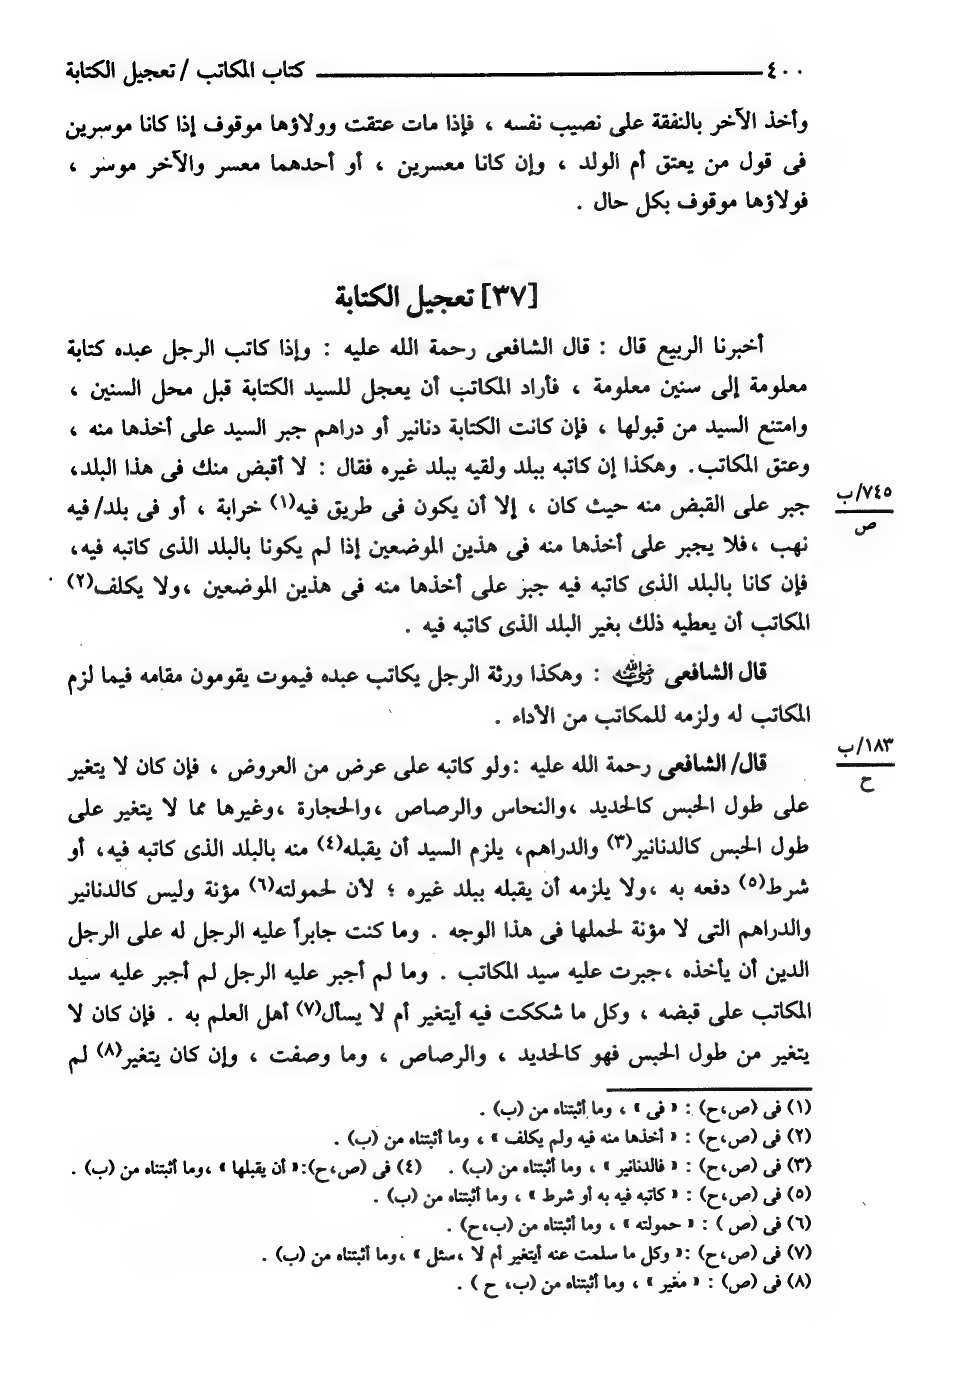 ٤٠٠ كتاب المكاتب / تعجيل الكتابة
وأخذ الآخر بالنفقة على نصيب نفسه ، فإذا مات عتقت وولاؤها موقوف إذا كانا موسرين
فى قول من يعتق أم الولد ، وإن كانا معسرين ، أو أحدهما معسر والآخر موسر ،
فولاؤها موقوف بكل حال .
[٣٧] تعجيل الكتابة
أخبرنا الربيع قال : قال الشافعى رحمة الله عليه : وإذا كاتب الرجل عبده كتابة
معلومة إلى سنين معلومة ، فأراد المكاتب أن يعجل للسيد الكتابة قبل محل السنين ،
وامتنع السيد من قبولها ، فإن كانت الكتابة دنانير أو دراهم جبر السيد على أخذها منه ،
وعتق المكاتب. وهكذا إن كاتبه ببلد ولقيه ببلد غيره فقال : لا أقبض منك فى هذا البلد،
جبر على القبض منه حيث كان ، إلا أن يكون فى طريق فيه(١) خرابة ، أو فى بلد/ فيه
٧٤٥/ب
ص
نهب ،فلا يجبر على أخذها منه فى هذين الموضعين إذا لم يكونا بالبلد الذى كاتبه فيه،
فإن كانا بالبلد الذى كاتبه فيه جبر على أخذها منه فى هذين الموضعين ،ولا يكلف(٢)
المكاتب أن يعطيه ذلك بغير البلد الذى كاتبه فيه .
قال الشافعى رضي الله عنه : وهكذا ورثة الرجل يكاتب عبده فيموت يقومون مقامه فيما لزم
المكاتب له ولزمه للمكاتب من الأداء .
قال/ الشافعى رحمة الله عليه :ولو كاتبه على عرض من العروض ، فإن كان لا يتغير
١٨٣/ب
ح
على طول الحبس كالحديد ،والنحاس والرصاص ،والحجارة ،وغيرها مما لا يتغير على
طول الحبس كالدنانير(٣) والدراهم، يلزم السيد أن يقبله(٤) منه بالبلد الذى كاتبه فيه، أو
شرط(٥) دفعه به ،ولا يلزمه أن يقبله ببلد غيره ؛ لأن لحمولته(٦) مؤنة وليس كالدنانير
والدراهم التى لا مؤنة لحملها فى هذا الوجه . وما كنت جابراً عليه الرجل له على الرجل
الدين أن يأخذه ،جبرت عليه سيد المكاتب . وما لم أجبر عليه الرجل لم أجبر عليه سيد
المكاتب على قبضه ، وكل ما شككت فيه أيتغير أم لا يسأل(٧) أهل العلم به . فإن كان لا
يتغير من طول الحبس فهو كالحديد ، والرصاص ، وما وصفت ، وإن كان يتغير(٨) لم
(١) فى (ص،ح) : « فى » ، وما أثبتناه من (ب) .
(٢) فى (ص،ح) : « أخذها منه فيه ولم يكلف » ، وما أثبتناه من (ب) .
(٣) فى (ص،ح) : « فالدنانير » ، وما أثبتناه من (ب) . (٤) فى (ص،ح):« أن يقبلها » ،وما أثبتناه من (ب) .
(٥) فى (ص،ح) : « كاتبه فيه به أو شرط » ، وما أثبتناه من (ب) .
(٦) فى (ص ) : « حمولته » ، وما أثبتناه من (ب،ح) .
(٧) فى (ص،ح) :« وكل ما سلمت عنه أيتغير أم لا ،سئل » ،وما أثبتناه من (ب) .
(٨) فى (ص) : « مغير » ، وما أثبتناه من (ب، ح ) .